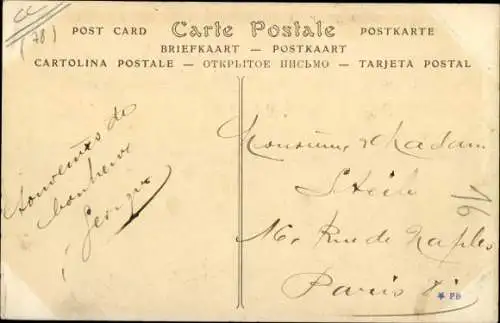 CC
(78)
POST CARD Carte Postale POSTKARTE
BRIEFKAART — POSTKAART
CARTOLINA POSTALE — ОТКРЫТОЕ ПИСЬМО — TARJETA POSTAL
Souvenirs de
Georges
Monsieur & Madam
16, Rue de Naples
Paris
91
* PB